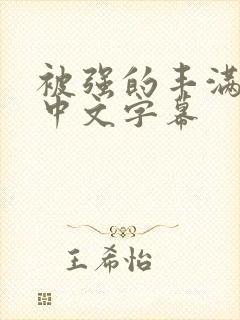 被强的丰满
中文字幕
王希怡